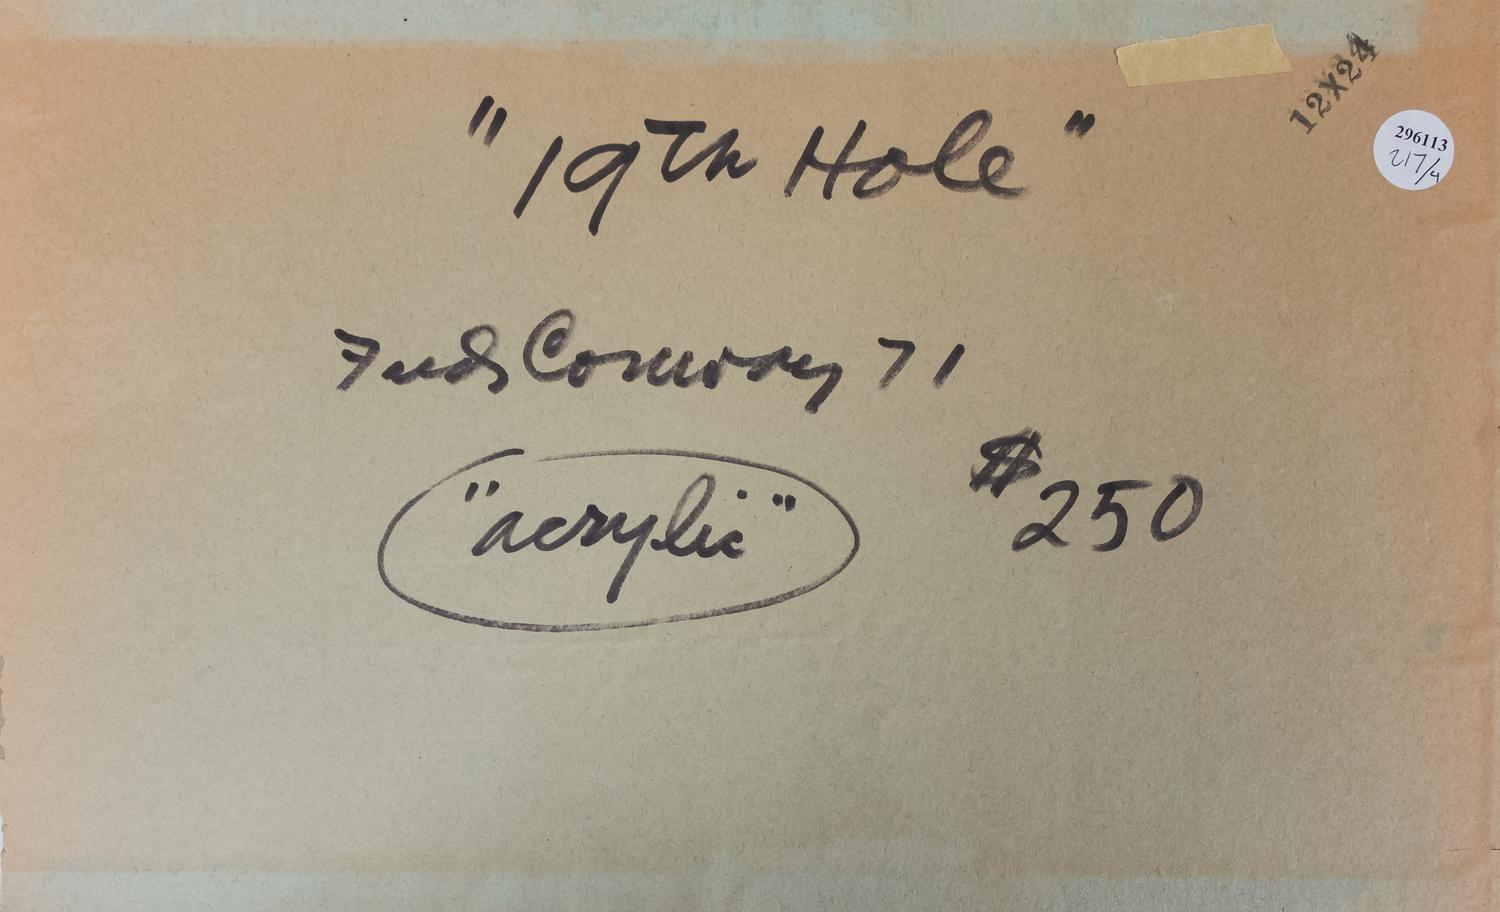 12X24
296113
217/4
"19Th Hole"
Fred Conway 71
"acrylic" $250